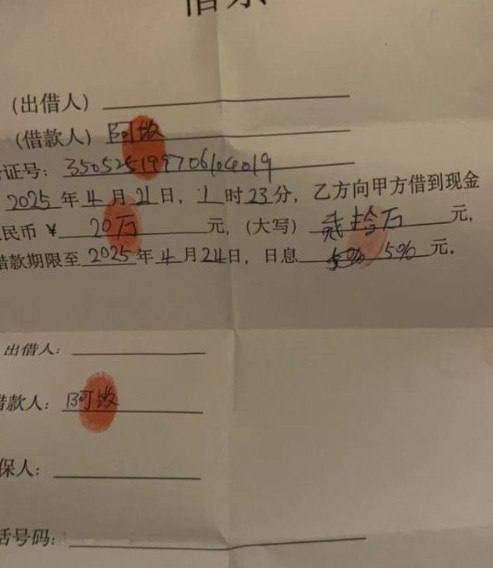 借条
(出借人)
(借款人) 阿敏
证号：
2025年4月21日，1时23分，乙方向甲方借到现金
民币 ¥ 20万 元，(大写) 贰拾万 元，
借款期限至2025年4月24日，日息 5% 5% 元.
出借人：
借款人：阿敏
保人：
话号码：